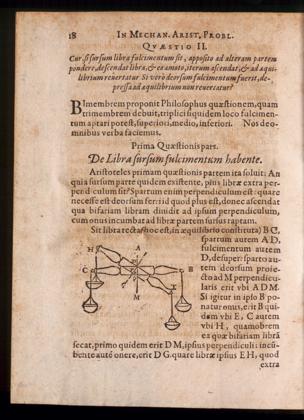 18 IN MECHAN. ARIST. PROBL.
QVÆSTIO II.
Cur, si sursum libra fulcimentum sit, apposito ad alteram partem
pondere, descendat libra, & eo amoto, iterum ascendat, & ad æqui-
librium revertatur. Si verò deorsum fulcimentum fuerit, de-
pressa ad æquilibrium non revertatur?
Bimembrem proponit Philosophus quæstionem, quam
trimembrem debuit, triplici siquidem loco fulcimen-
tum aptari potest, superiori, medio, inferiori. Nos de o-
mnibus verba faciemus.
Prima Quæstionis pars.
De Libra sursum fulcimentum habente.
Aristoteles primam quæstionis partem ita soluit: An
quia sursum parte quidem existente, plus libræ extra per-
pendiculum sit? Spartum enim perpendiculum est quare
necesse est deorsum ferri id quod plus est, donec ascendat
qua bifariam libram diuidit ad ipsum perpendiculum,
cum onus incumbat ad libræ partem sursus raptam.
Sit libra recta hoc est, in æquilibrio constituta) BC,
spartum autem AD,
fulcimentum autem
D, desuper: sparto au-
tem deorsum proie-
cto ad M perpendicu-
laris erit vbi ADM.
Si igitur in ipso B po-
natur onus, erit B qui-
dem vbi E, C autem
vbi H, quamobrem
ea quæ bifariam librā
H A C B D E M
secat, primo quidem erit DM, ipsius perpendiculi: incū-
bente autē onere, erit DG. quare libræ ipsius EH, quod
extra